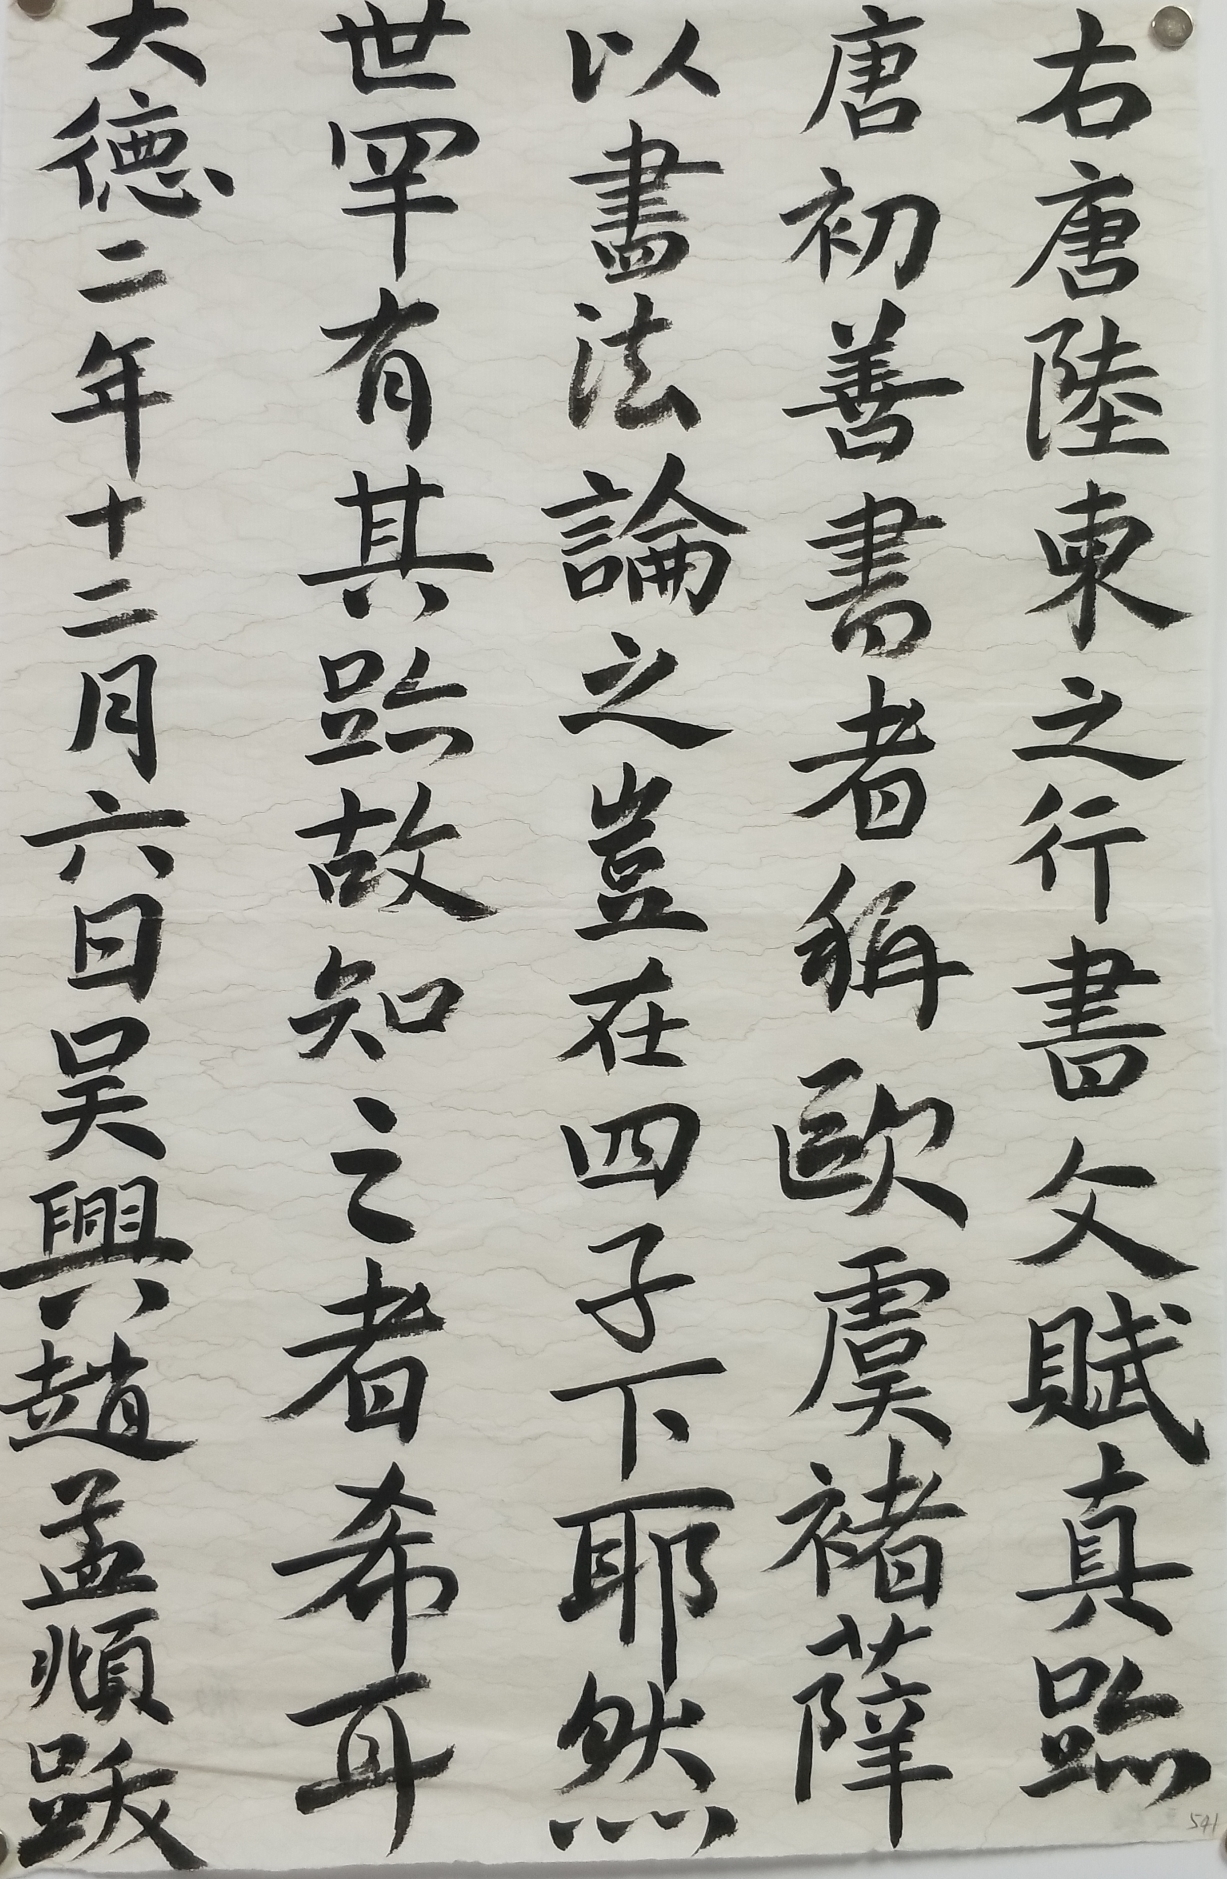 右唐陸柬之行書文賦真跡
唐初善書者稱歐虞褚薛
以書法論之豈在四子下耶然
世罕有其跡故知之者希耳
大德二年十二月六日吴興趙孟頫跋
541